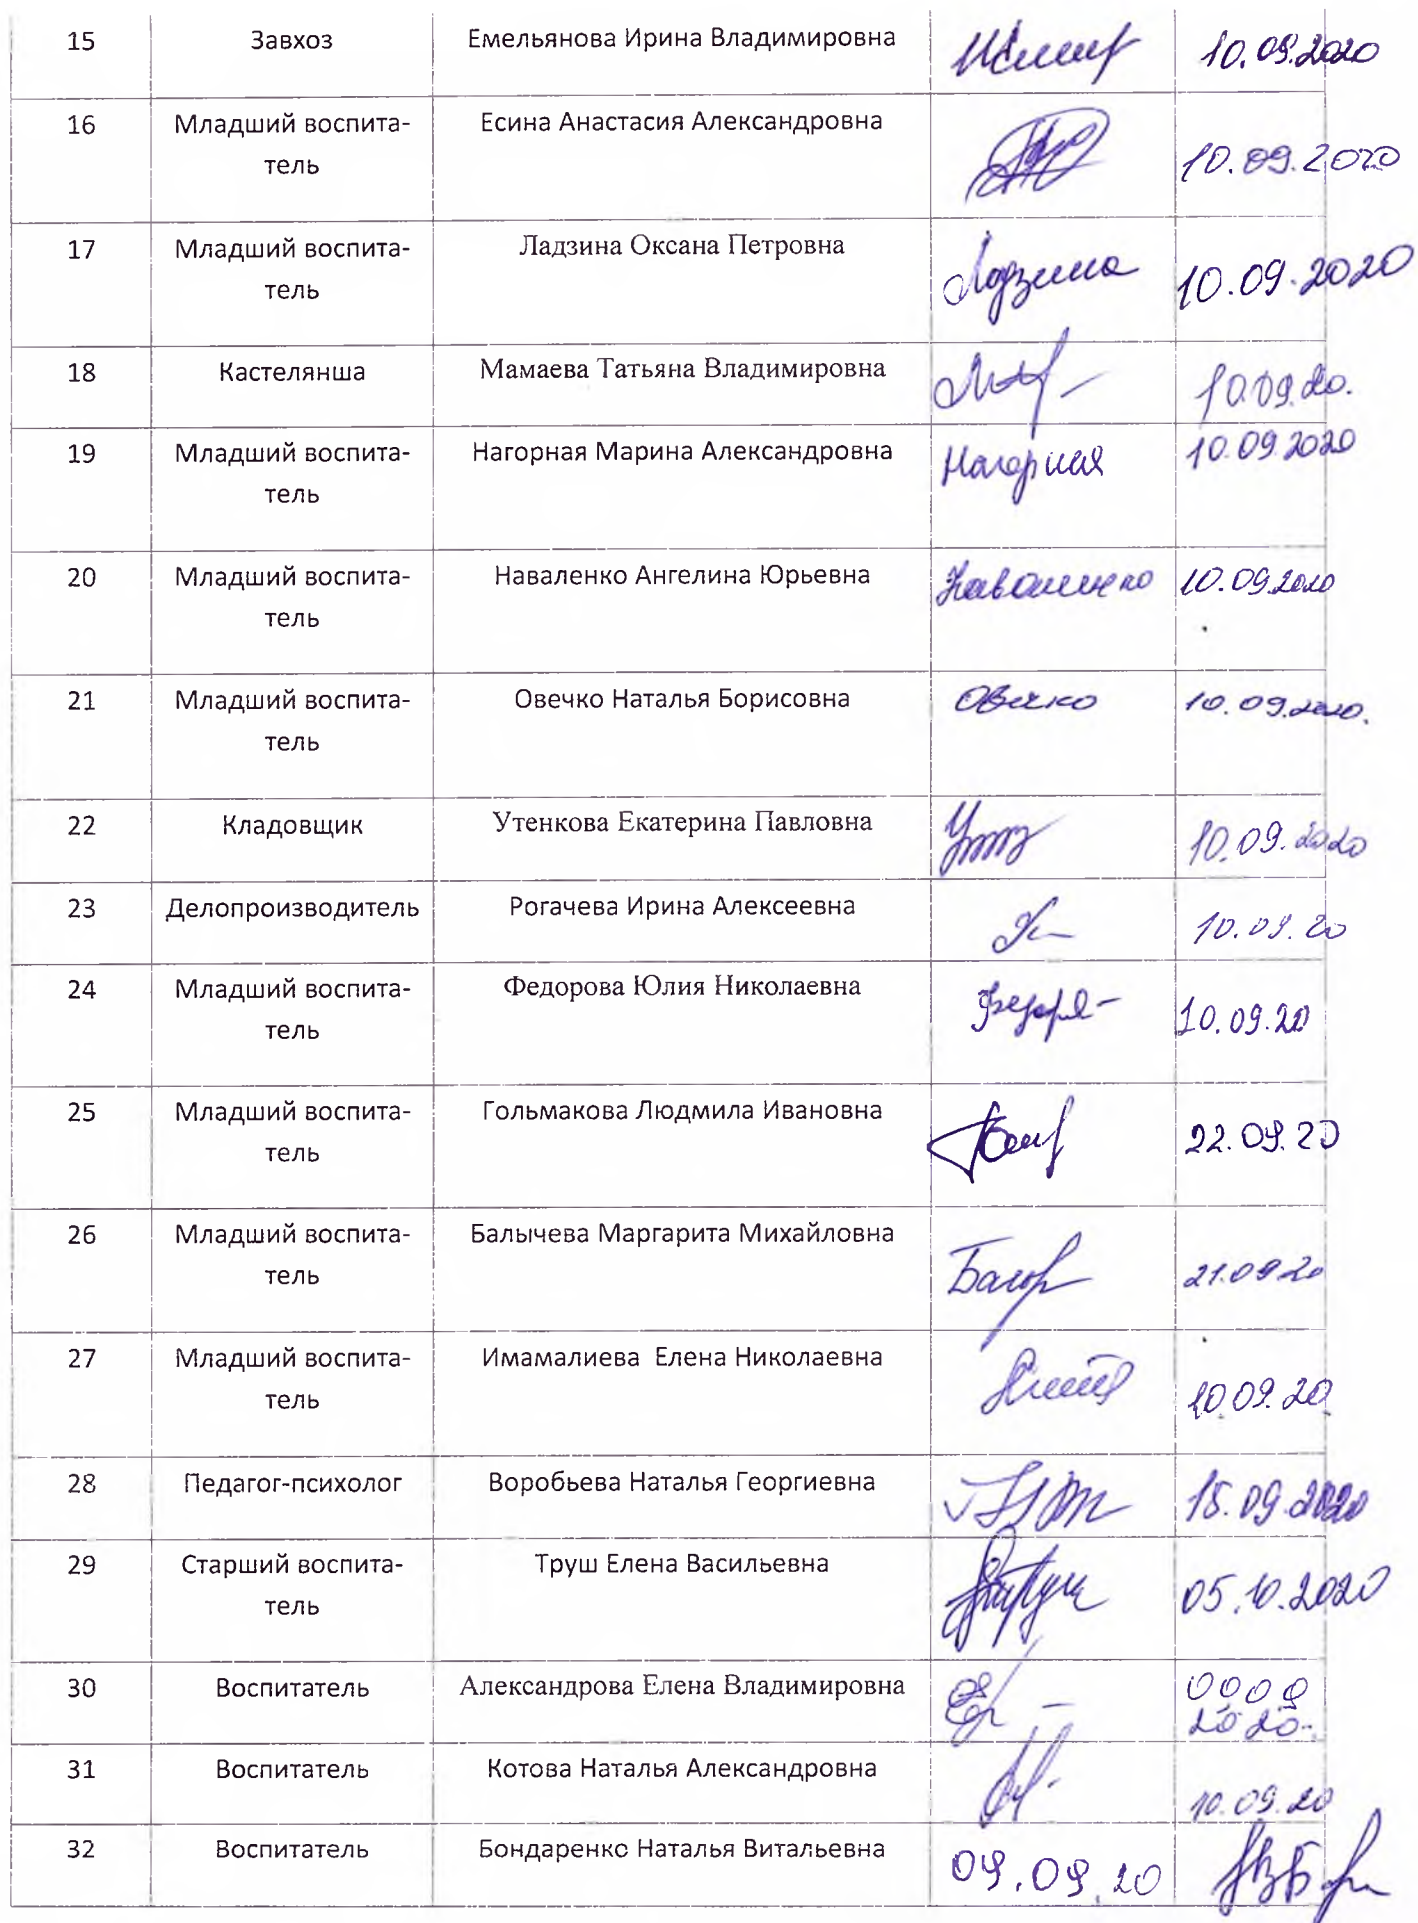 15 Завхоз Емельянова Ирина Владимировна 10.09.2020
16 Младший воспита- Есина Анастасия Александровна
тель 10.09.2020
17 Младший воспита- Ладзина Оксана Петровна
тель Ладзина 10.09.2020
18 Кастелянша Мамаева Татьяна Владимировна 10.09.20.
19 Младший воспита- Нагорная Марина Александровна Нагорная 10.09.2020
тель
20 Младший воспита- Наваленко Ангелина Юрьевна Наваленко 10.09.2020
тель
21 Младший воспита- Овечко Наталья Борисовна Овечко 10.09.2020.
тель
22 Кладовщик Утенкова Екатерина Павловна 10.09.2020
23 Делопроизводитель Рогачева Ирина Алексеевна 10.09.20
24 Младший воспита- Федорова Юлия Николаевна
тель 10.09.20
25 Младший воспита- Гольмакова Людмила Ивановна
тель 22.09.20
26 Младший воспита- Балычева Маргарита Михайловна
тель 21.09.20
27 Младший воспита- Имамалиева Елена Николаевна
тель 10.09.20
28 Педагог-психолог Воробьева Наталья Георгиевна 15.09.2020
29 Старший воспита- Труш Елена Васильевна
тель 05.10.2020
30 Воспитатель Александрова Елена Владимировна
2020.
31 Воспитатель Котова Наталья Александровна 10.09.20
32 Воспитатель Бондаренко Наталья Витальевна 09.09.20